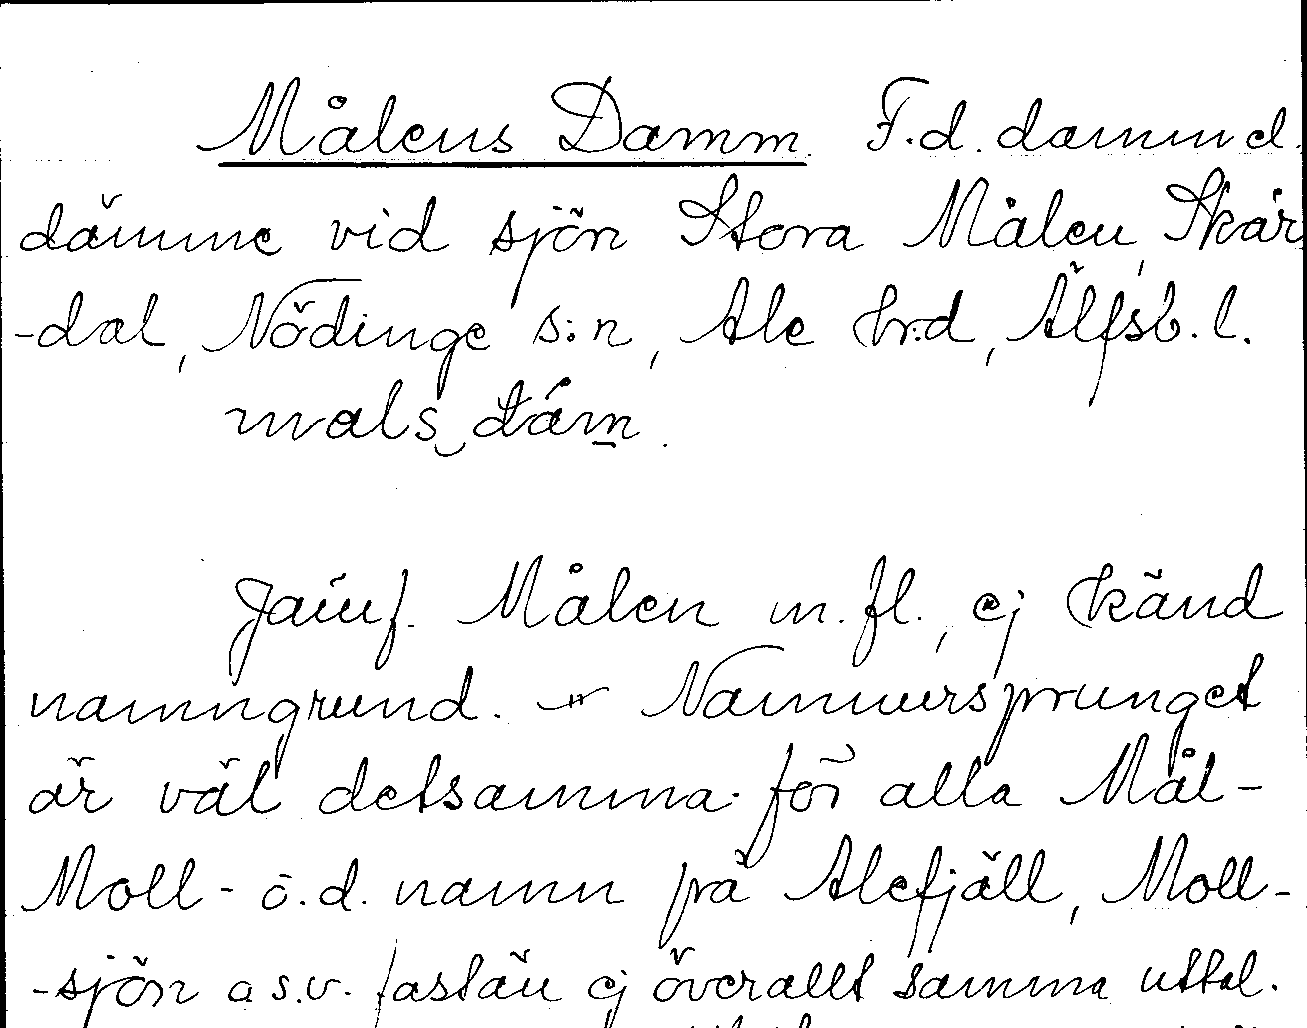 Målens Damm. F.d. damm el.
dämme vid sjön Stora Målen, Skår
-dal, Nödinge s:n, Ale hrd, Älfsb. l.
mals däm.
Jämf. Målen m.fl., ej känd
namngrund. - Namnursprunget
är väl detsamma för alla Mål-
Moll- o.d. namn på Alefjäll, Moll-
-sjön o s.v. fastän ej överallt samma uttal.